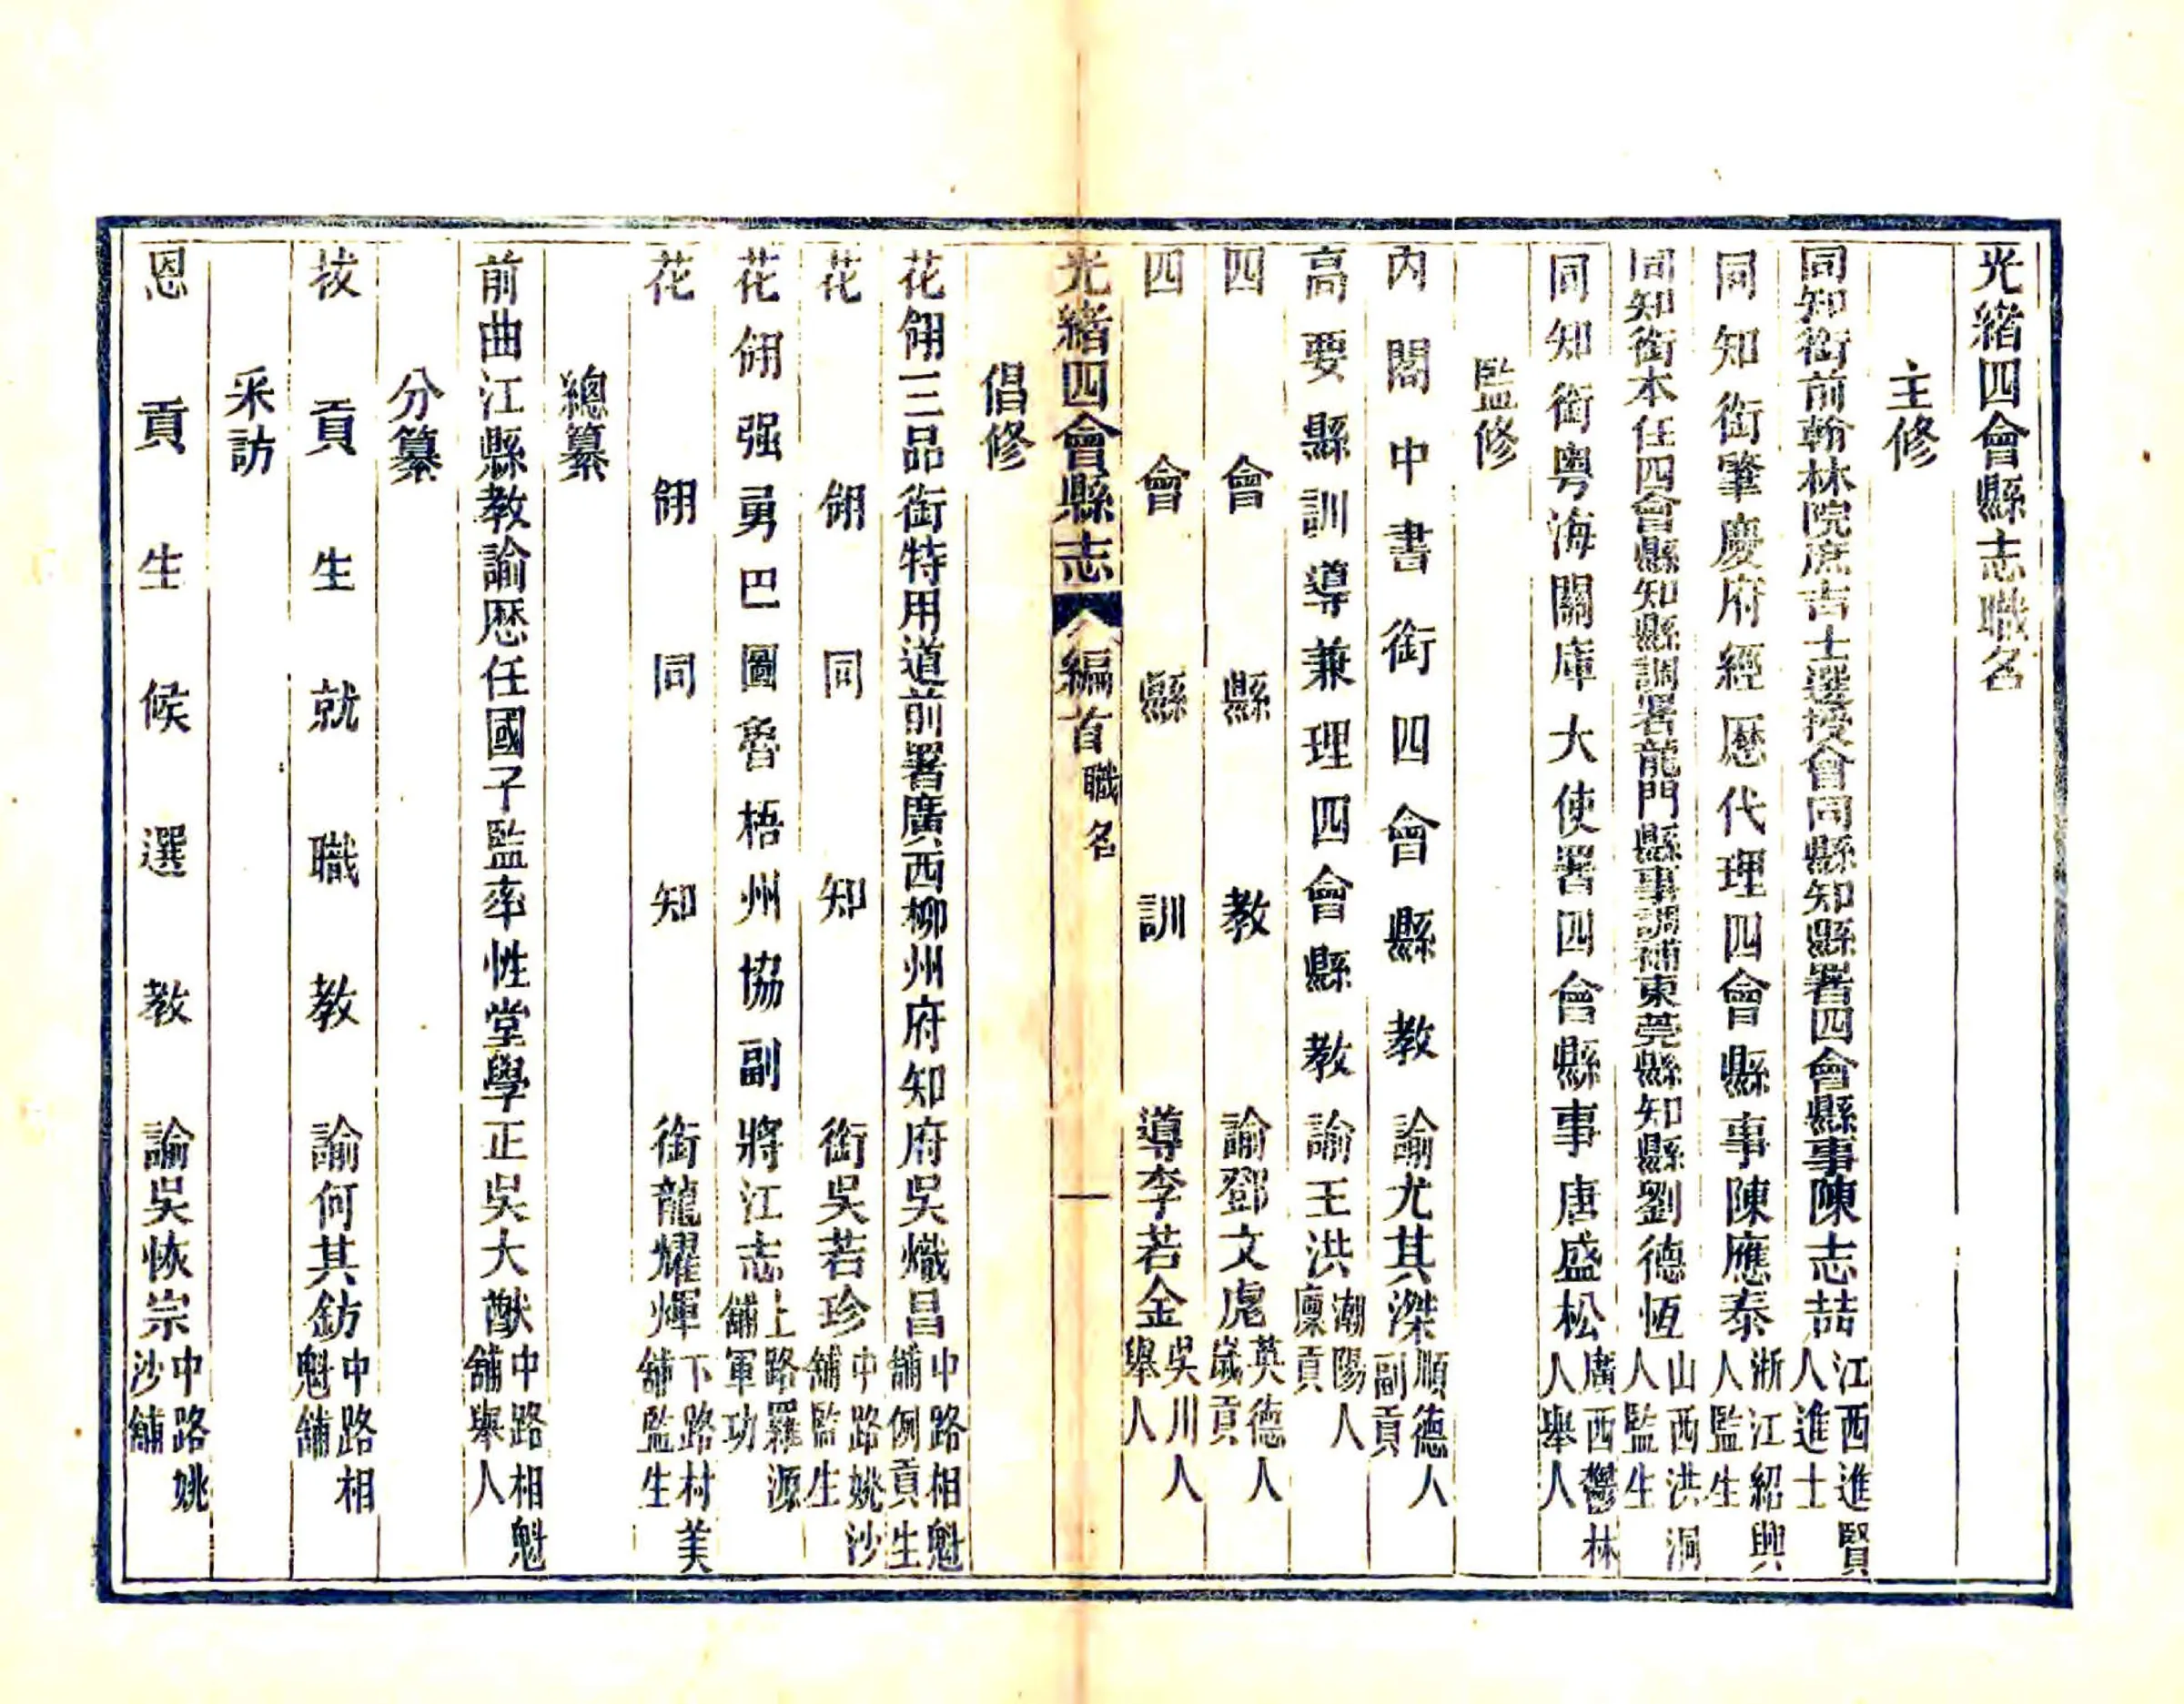 光緒四會縣志職名
主修
同知銜前翰林院庶吉士選授會同縣知縣署四會縣事陳志喆江西進賢人進士
同知銜肇慶府經厯代理四會縣事陳應泰浙江紹興人監生
同知銜本任四會縣知縣調署龍門縣事調補東莞縣知縣劉德恆山西洪洞人監生
同知銜粤海關庫大使署四會縣事唐盛松廣西鬱林人舉人
監修
內閣中書銜四會縣教諭尤其㴶順德人副貢
高要縣訓導兼理四會縣教諭王洪潮陽人廩貢
四會縣教諭鄧文虎英德人歲貢
四會縣訓導李若金吳川人舉人
光緒四會縣志 編首 職名 一
倡修
花翎三品銜特用道前署廣西柳州府知府吳熾昌中路相魁舖例貢生
花翎同知銜吳若珍中路姚沙舖監生
花翎强勇巴圖魯梧州協副將江志上路羅源舖軍功
花翎同知銜龍耀輝下路村美舖監生
總纂
前曲江縣教諭厯任國子監率性堂學正吳大猷中路相魁舖舉人
分纂
拔貢生就職教諭何其鈁中路相魁舖
采訪
恩貢生候選教諭吳恢宗中路姚沙舖